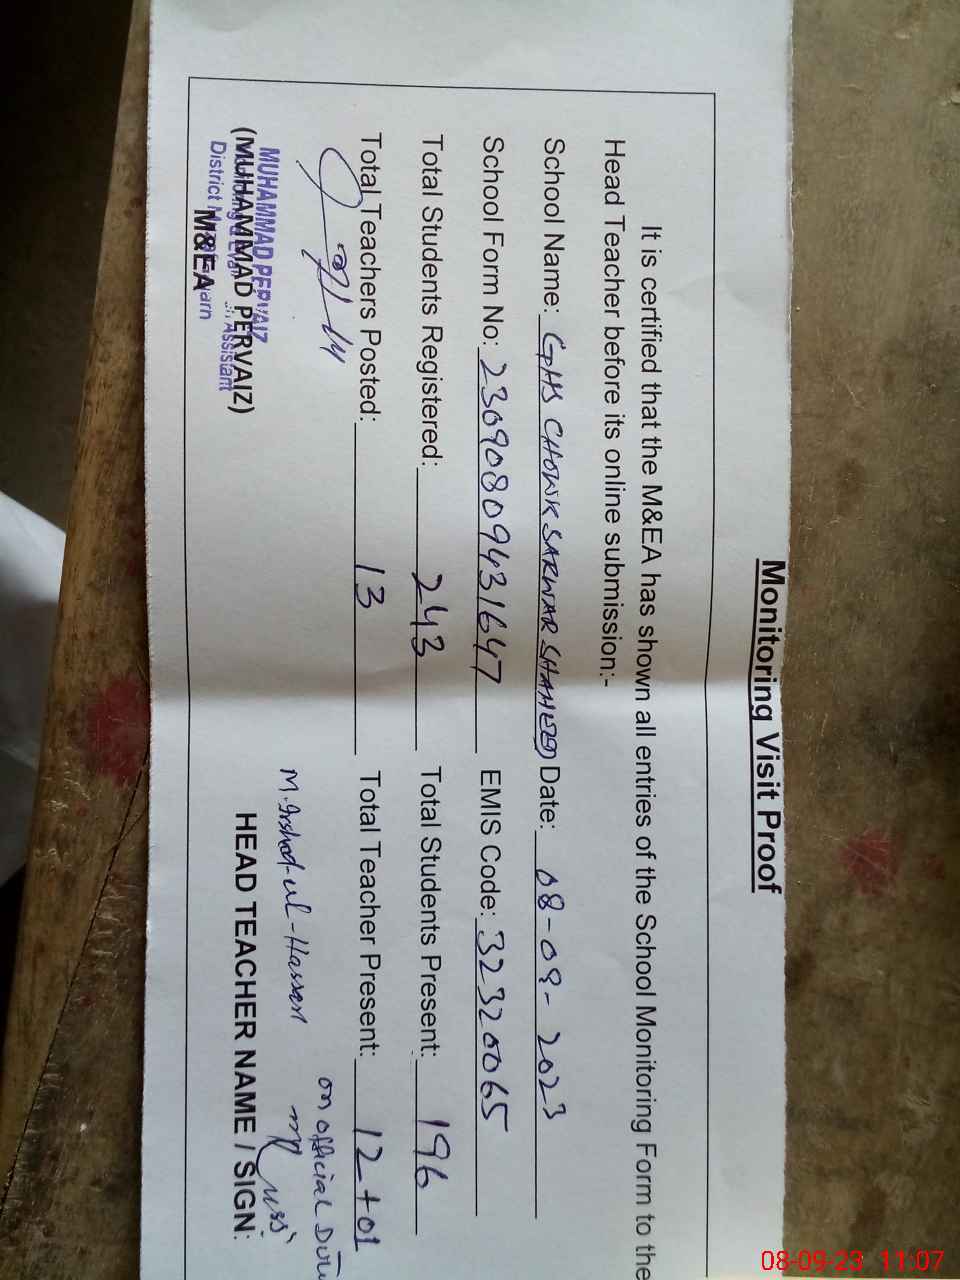 Monitoring Visit Proof
It is certified that the M&EA has shown all entries of the School Monitoring Form to the
Head Teacher before its online submission:-
School Name: GHS CHOWK SARWAR SHAHEED Date: 08-09-2023
School Form No: 23090809431647 EMIS Code: 32320065
Total Students Registered: 243 Total Students Present: 196
Total Teachers Posted: 13 Total Teacher Present: 12+01
on official Duty
M. Irshad-ul-Hassan
MUHAMMAD PERVAIZ
(MUHAMMAD PERVAIZ)
Assistant
District
M&EA
HEAD TEACHER NAME / SIGN:
08-09-23 11:07